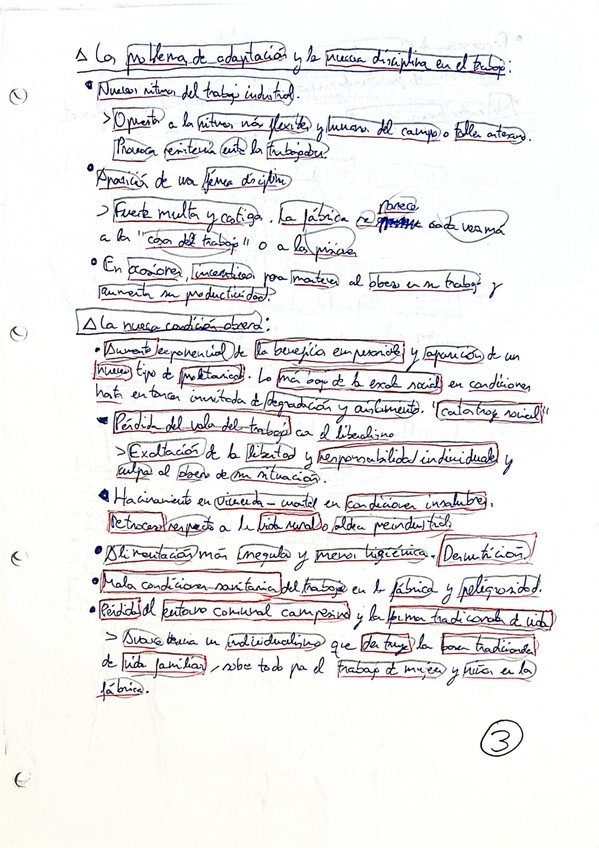 △ Los problemas de adaptación y la nueva disciplina en el trabajo:
• Nuevos ritmos del trabajo industrial.
> Opuestos a los ritmos más flexibles y humanos del campo o taller artesano.
Provoca resistencia entre los trabajadores.
• Aparición de una férrea disciplina
> Fuerte multa y castigo. La fábrica se parece cada vez más
a las "casas del trabajo" o a las prisiones
• En ocasiones, incentivos para mantener al obrero en su trabajo y
aumentar su productividad.
△ La nueva condición obrera:
• Aumento exponencial de los beneficios empresariales y aparición de un
nuevo tipo de proletariado. Lo más bajo de la escala social en condiciones
hasta entonces inusitadas de degradación y aislamiento. "catástrofe social"
• Pérdida del valor del trabajo con el liberalismo
> Exaltación de la libertad y responsabilidad individuales y
culpa al obrero de su situación.
• Hacinamiento en vivienda-cuartel en condiciones insalubres.
Retroceso respecto a la vida rural o aldea preindustrial.
• Alimentación más irregular y menos higiénica. Desnutrición.
• Malas condiciones sanitarias del trabajo en la fábrica y peligrosidad.
• Pérdida del entorno comunal campesino y las formas tradicionales de vida
> Avance hacia un individualismo que destruye las bases tradicionales
de vida familiar, sobre todo por el trabajo de mujeres y niños en la
fábrica.
3